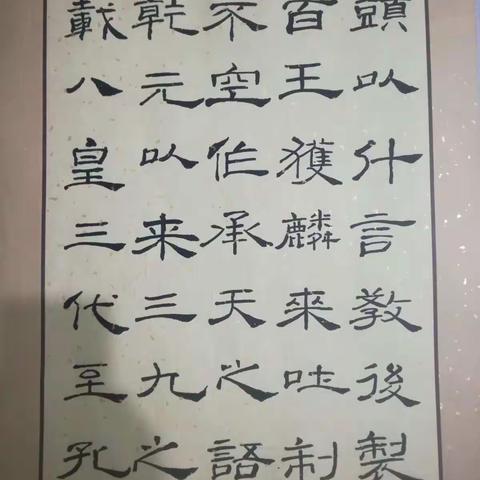 頭以什言教後製
百王獲麟來吐制
不空作承天之語
乾元以来三九之
載八皇三代至孔